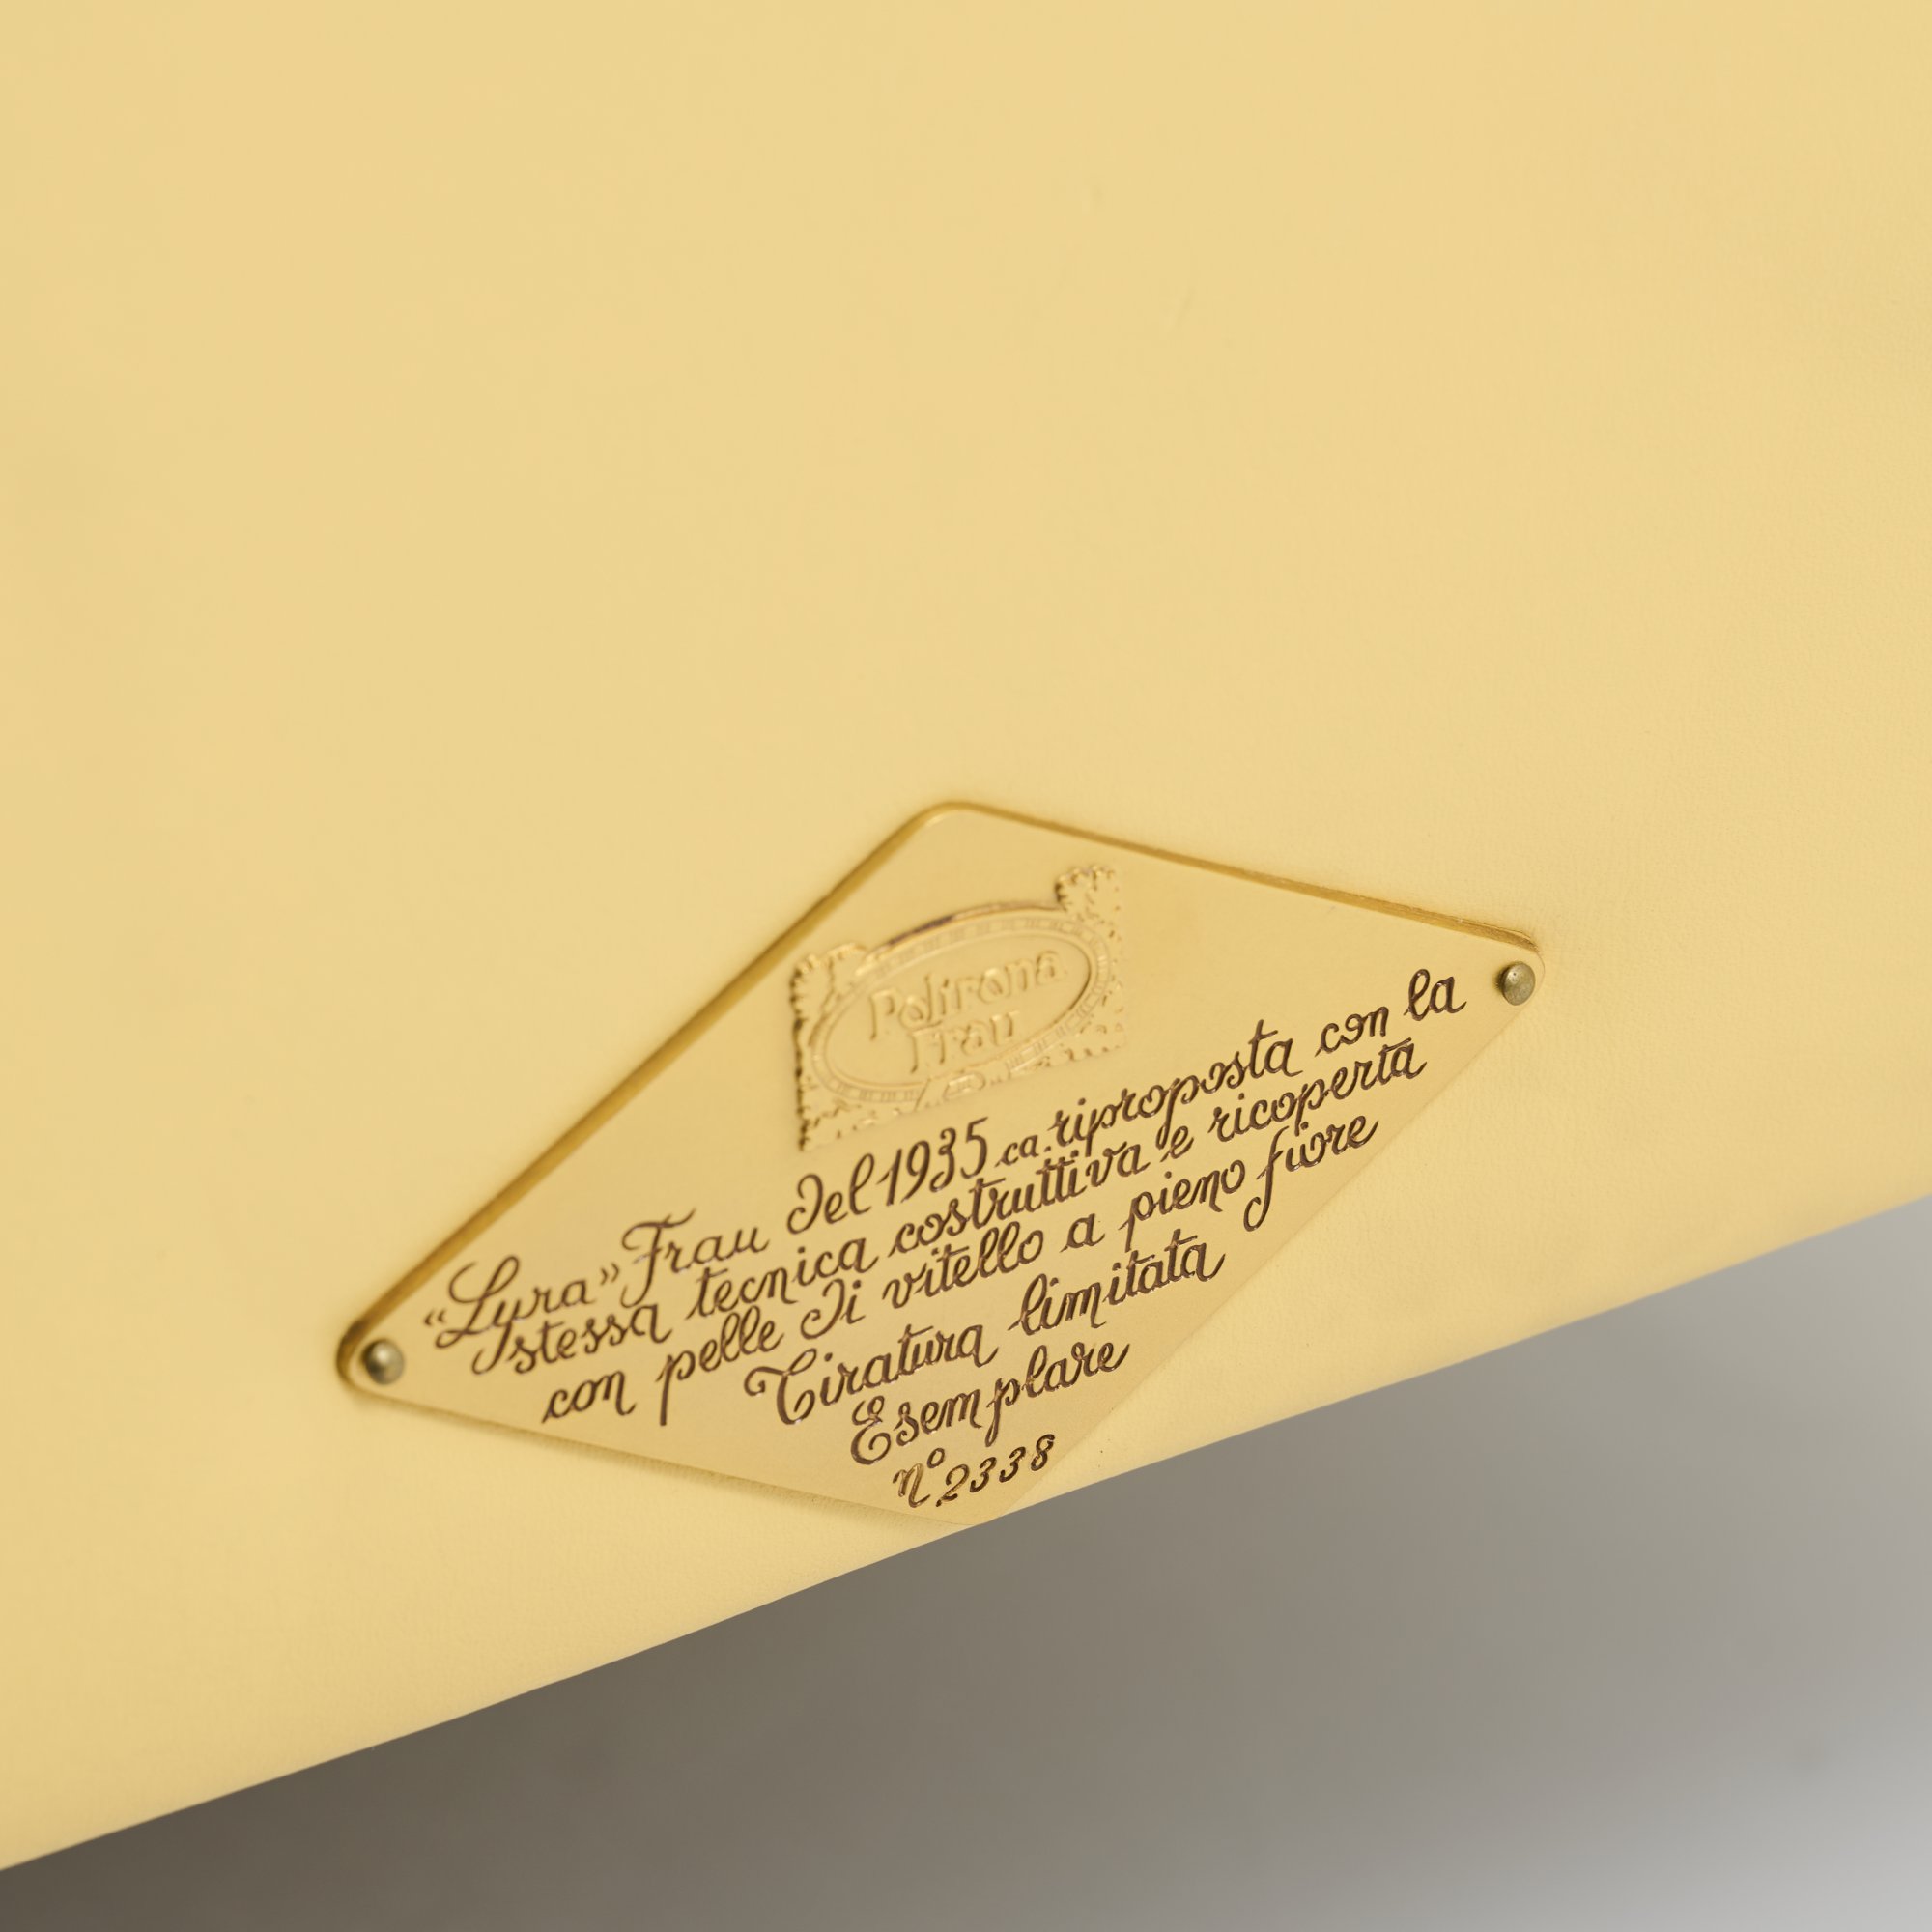 Poltrona
Frau
“Lyra” Frau del 1935 ca. riproposta con la
stessa tecnica costruttiva e ricoperta
con pelle di vitello a pieno fiore
Tiratura limitata
Esemplare
n° 2338